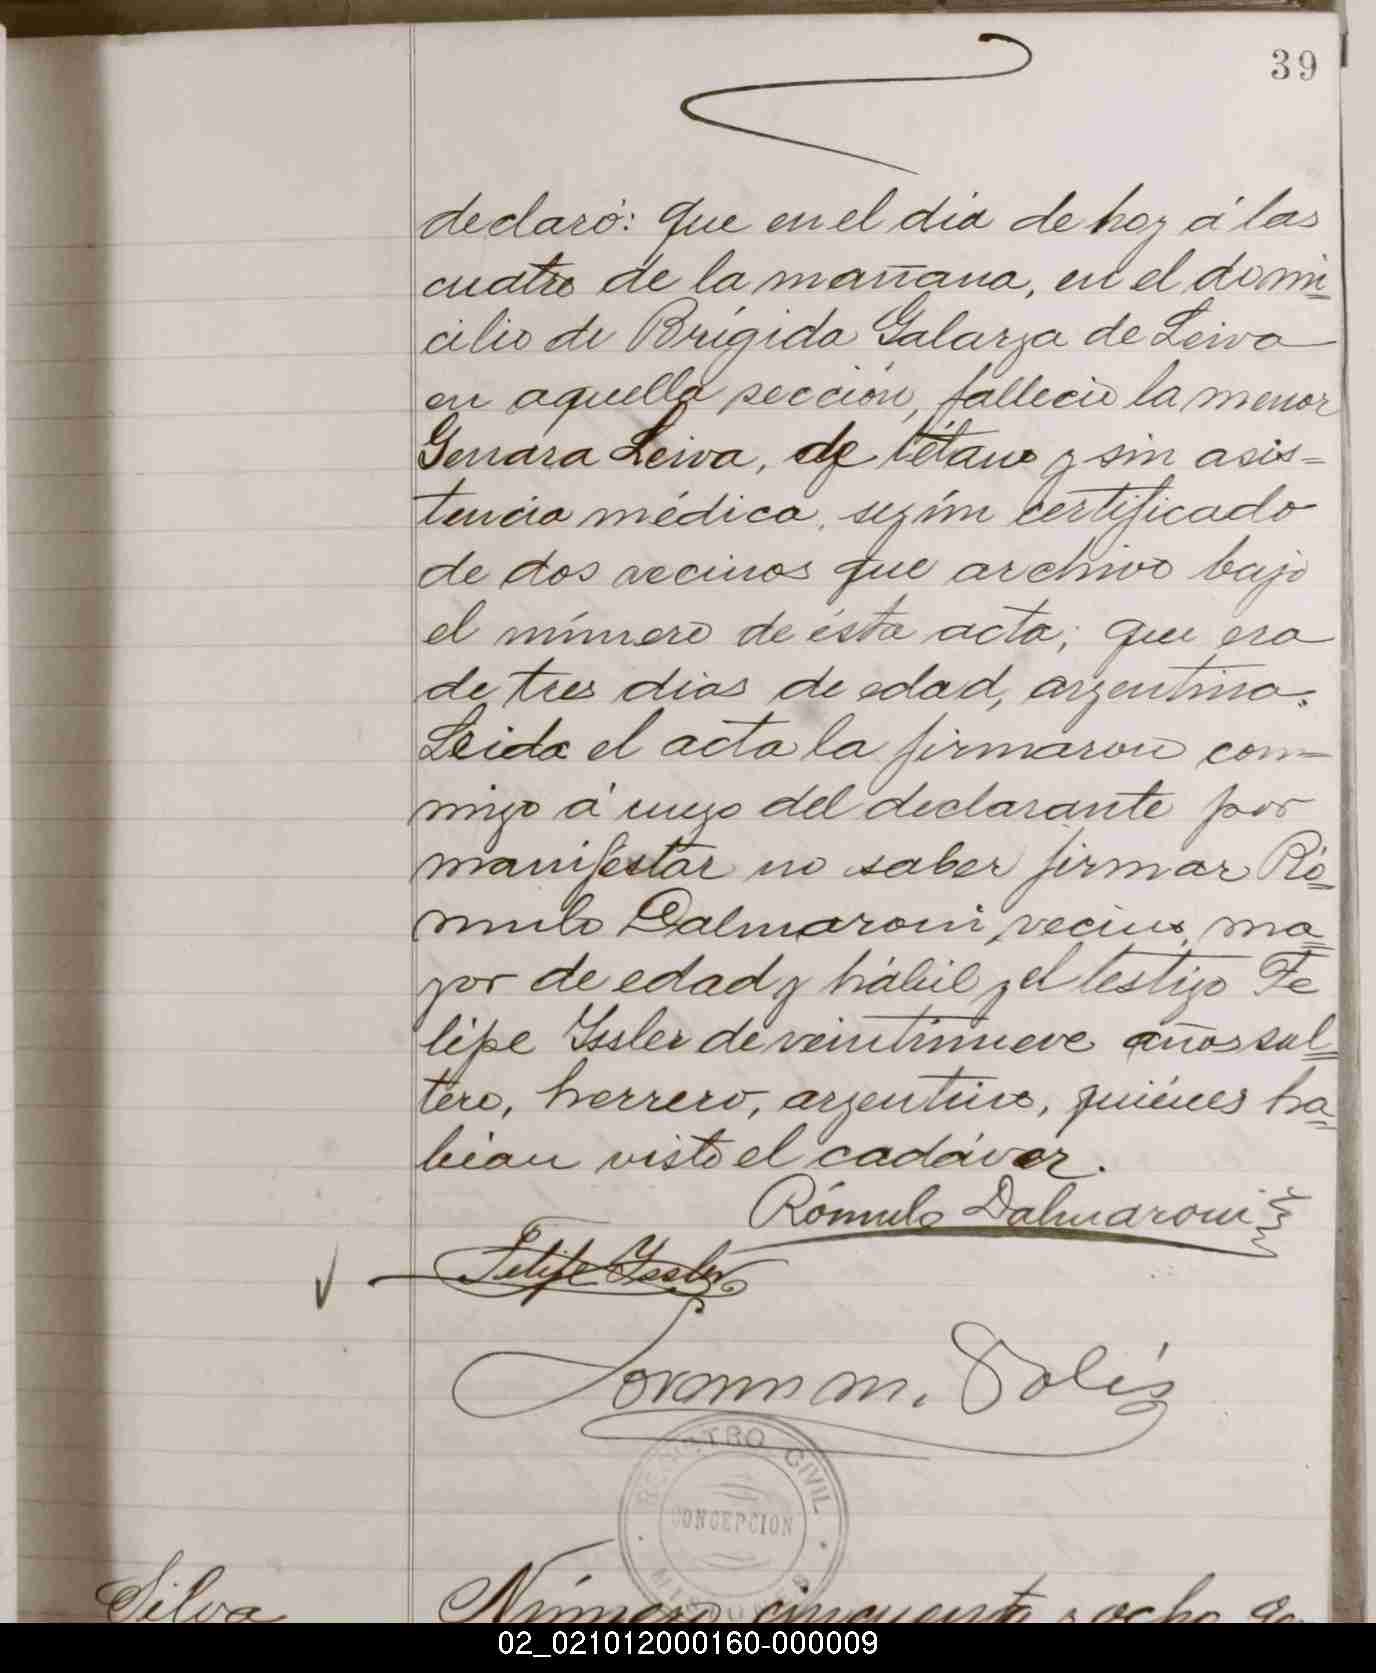 39
declaró: que en el dia de hoy á las
cuatro de la mañana, en el domi-
cilio de Brígida Galarza de Leiva
en aquella sección, falleció la menor
Genara Leiva, de tétano y sin asis=
tencia médica, según certificado
de dos vecinos que archivo bajo
el número de ésta acta; que era
de tres dias de edad, argentina.
Leida el acta la firmaron con=
migo á ruego del declarante por
manifestar no saber firmar Ró=
mulo Dalmaroni, vecino, ma=
yor de edad y hábil y el testigo Fe
lipe Issler de veintinueve años sol=
tero, herrero, argentino, quiénes ha=
bian visto el cadáver.
Rómulo Dalmaroni
Felipe Issler
M. Solís
REGISTRO CIVIL
CONCEPCION
MISIONES
Silva
Número cincuenta y ocho
02_021012000160-000009